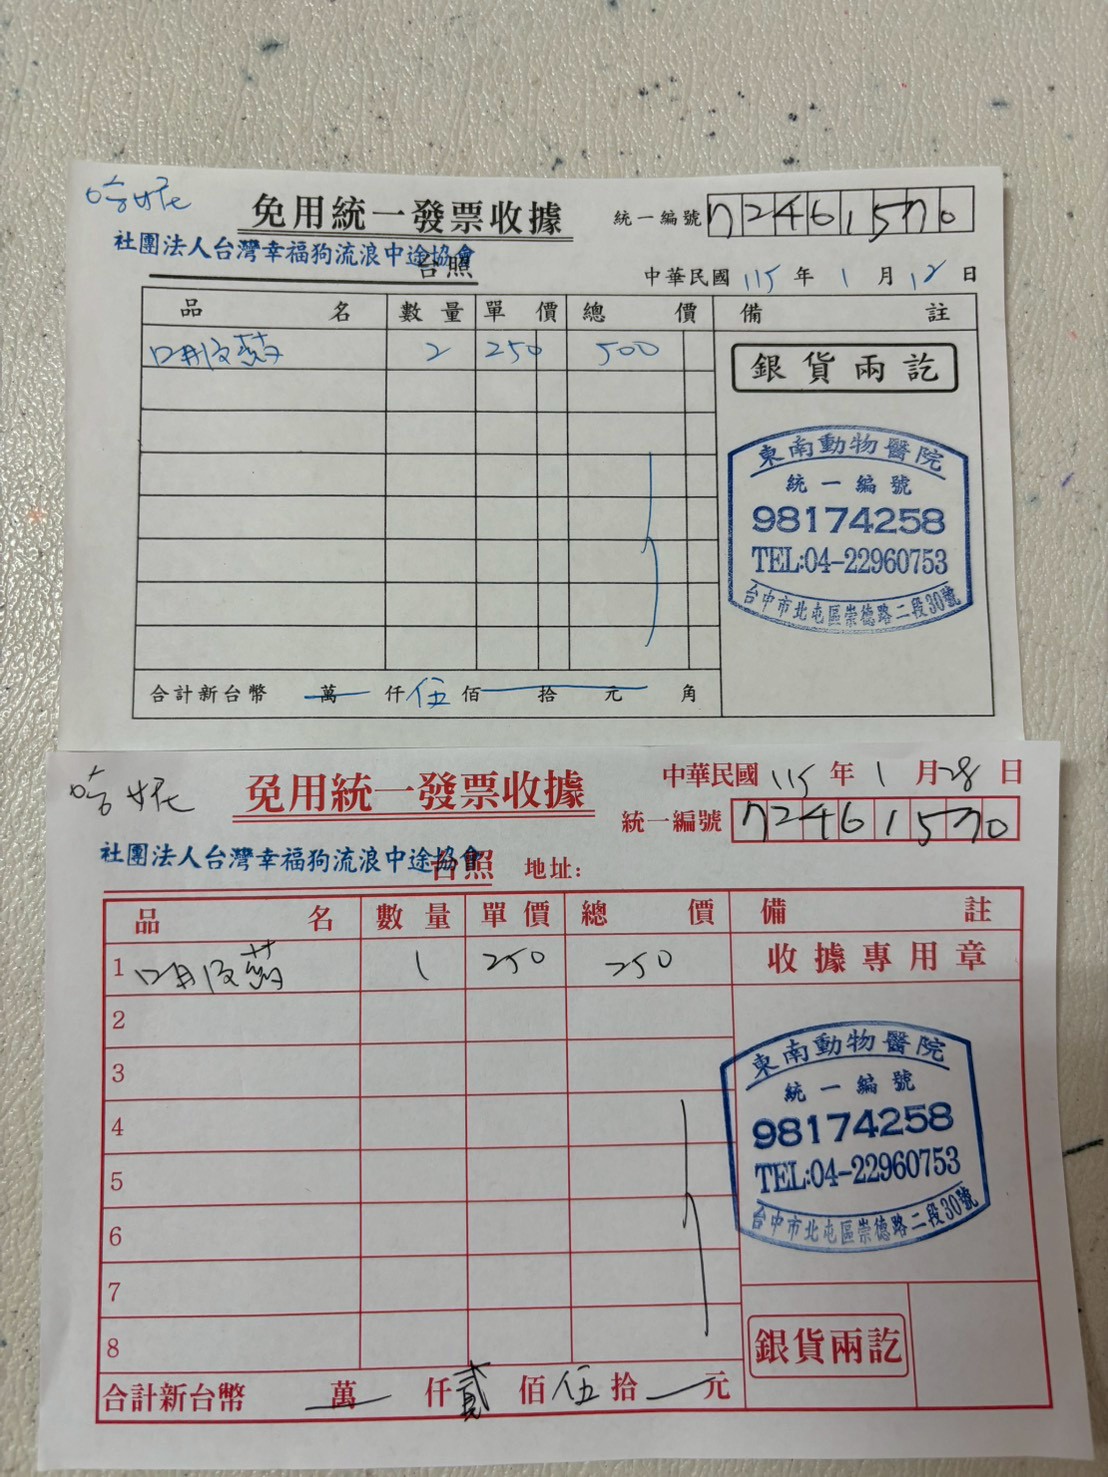 哈妮
免用統一發票收據
統一編號 72461570
社團法人台灣幸福狗流浪中途協會
台照
中華民國 115 年 1 月 12 日
品名 數量 單價 總價 備註
口服藥 2 250 500
銀貨兩訖
東南動物醫院
統一編號
98174258
TEL:04-22960753
台中市北屯區崇德路二段30號
合計新台幣 萬 仟 伍 佰 拾 元 角
哈妮
免用統一發票收據
中華民國 115 年 1 月 28 日
統一編號 72461570
社團法人台灣幸福狗流浪中途協會
台照 地址:
品名 數量 單價 總價 備註
1 口服藥 1 250 250
收據專用章
2
3
4
5
6
7
8
東南動物醫院
統一編號
98174258
TEL:04-22960753
台中市北屯區崇德路二段30號
銀貨兩訖
合計新台幣 萬 仟 貳 佰 伍 拾 元